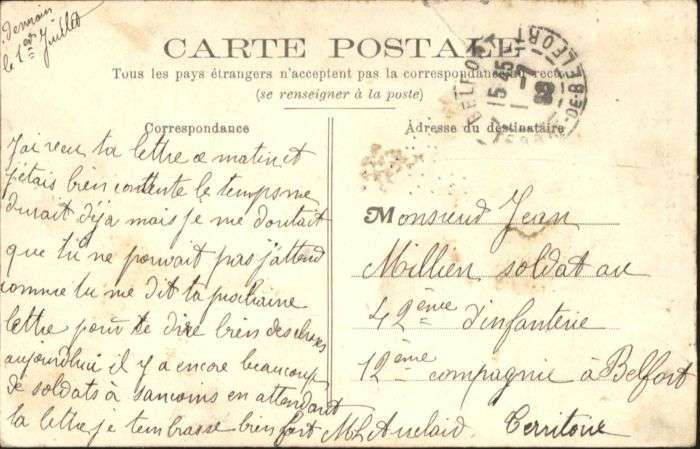 le 1er Juillet
CARTE POSTALE
Tous les pays étrangers n'acceptent pas la correspondance au recto
(se renseigner à la poste)
Correspondance
J'ai recu ta lettre ce matin et
j'étais bien contente le temps me
durait déja mais je me doutait
que tu ne pouvait pas j'attend
comme tu me dit ta prochaine
lettre pour te dire bien des choses
aujourdhui il y a encore beaucoup
de soldats à sancoins en attendant
ta lettre je tembrasse bien fort
Adresse du destinataire
Monsieur Jean
Millien soldat au
42ème d'infanterie
12ème compagnie à Belfort
Territoire
BELFORT
15 45